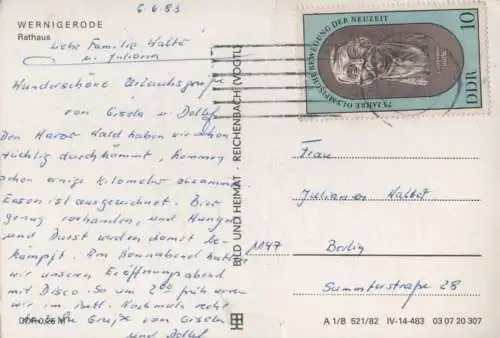 6.6.83
WERNIGERODE
Rathaus
Liebe Familie
u. Juliana
Wunderschöne Urlaubsgrüße
von Gisela u. Detlef
Den Harzer Wald haben wir schon
tüchtig durchkämmt, kommen
schon einige Kilometer zusammen
Essen ist ausgezeichnet. Bier
genug vorhanden, und Hunger
und Durst werden damit be-
kämpft. Am Sonnabend hatten
wir unseren Eröffnungsabend
mit Disco. So um 2⁰⁰ früh waren
wir im Bett. Nochmals recht
Grüße von Gisela
und Detlef
BILD UND HEIMAT · REICHENBACH (VOGTL)
75 JAHRE OLYMPISCHE BEWEGUNG DER NEUZEIT
10
DDR
Frau
Berlin
28
A 1/B 521/82 IV-14-483 03 07 20 307